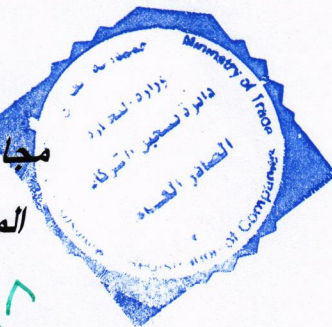 Minmetry of Trade
وزارة التجارة
دائرة تسجيل الشركات
الصادر العام
of Companies
مجا
الم
٨